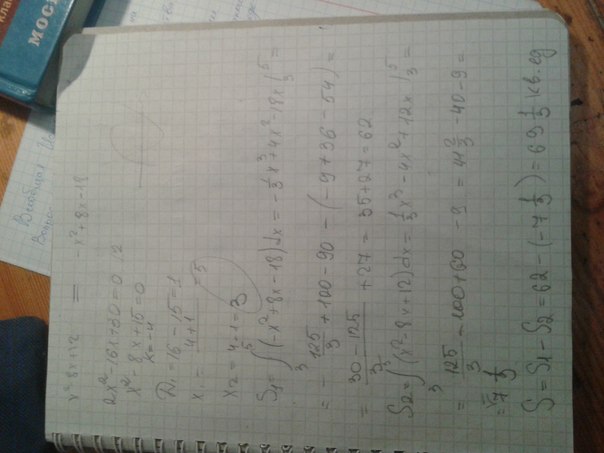 x²-8x+12 = -x²+8x-18
2x²-16x+30=0 |:2
x²-8x+15=0
k=-4
D₁=16-15=1
x₁= 4+1 =5
x₂=4-1=3
S₁=∫₃⁵(-x²+8x-18)dx=-1/3x³+4x²-18x|₃⁵=
=-125/3+100-90-(-9+36-54)=
=30-125/3+27=35+27=62
S₂=∫₃⁵(x²-8x+12)dx=1/3x³-4x²+12x|₃⁵=
=125/3-100+60-9=41 2/3-40-9=
=-7 1/3
S=S₁-S₂=62-(-7 1/3)=69 1/3 кв.ед
МОС
клас